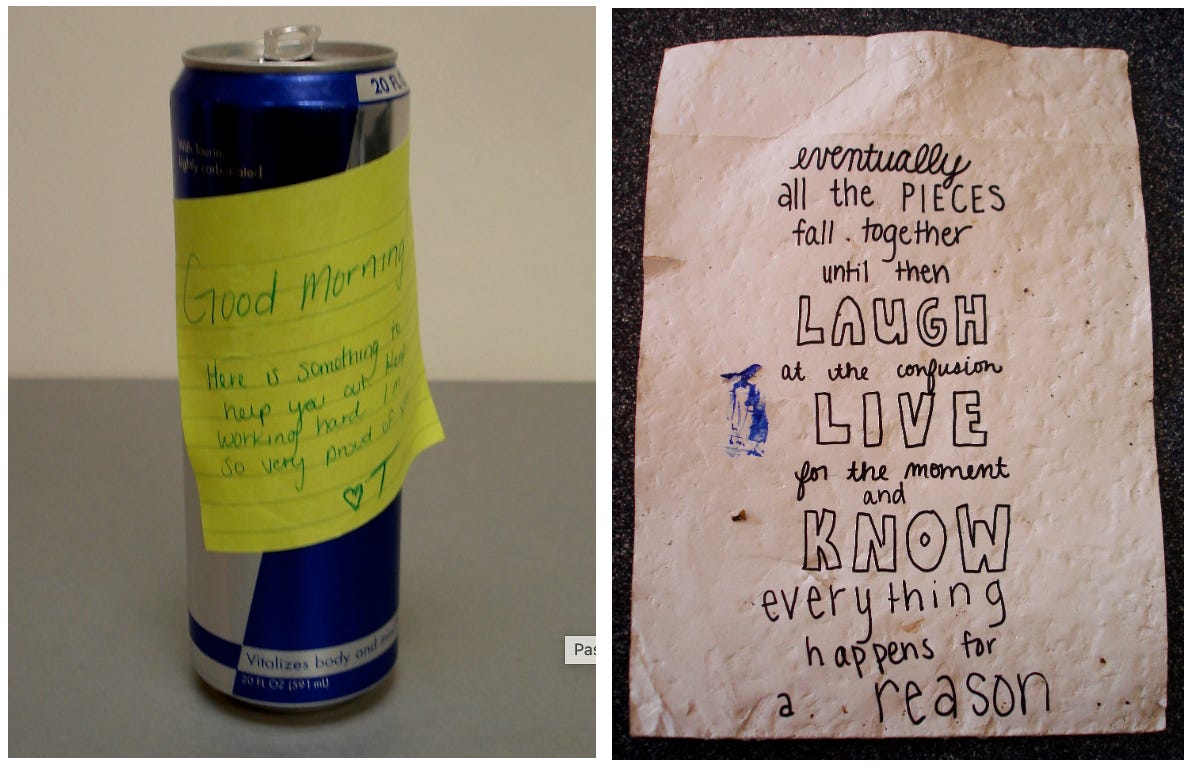 20 FL
With Taurin
lightly carbonated
Good Morning
Here is something to
help you out. Keep
working hard. I'm
so very proud of
♡T
Vitalizes body and
20 FL OZ (591 mL)
Pas
eventually
all the PIECES
fall together
until then
LAUGH
at the confusion
LIVE
for the moment
and
KNOW
everything
happens for
a reason